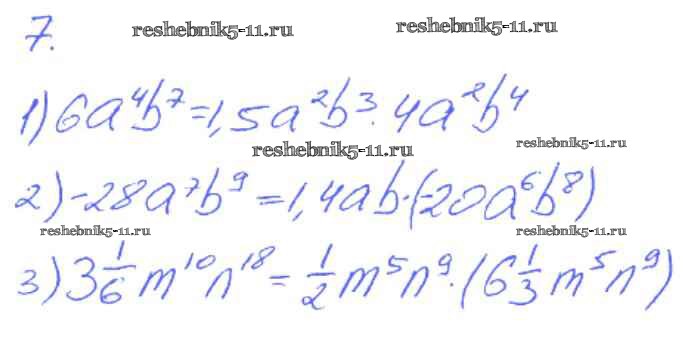 7. reshebnik5-11.ru reshebnik5-11.ru
1) 6a⁴b⁷ = 1,5a²b³ · 4a²b⁴
reshebnik5-11.ru
reshebnik5-11.ru
2) -28a⁷b⁹ = 1,4ab · (-20a⁶b⁸)
reshebnik5-11.ru reshebnik5-11.ru
3) 3 1/6 m¹⁰n¹⁸ = 1/2 m⁵n⁹ · (6 1/3 m⁵n⁹)